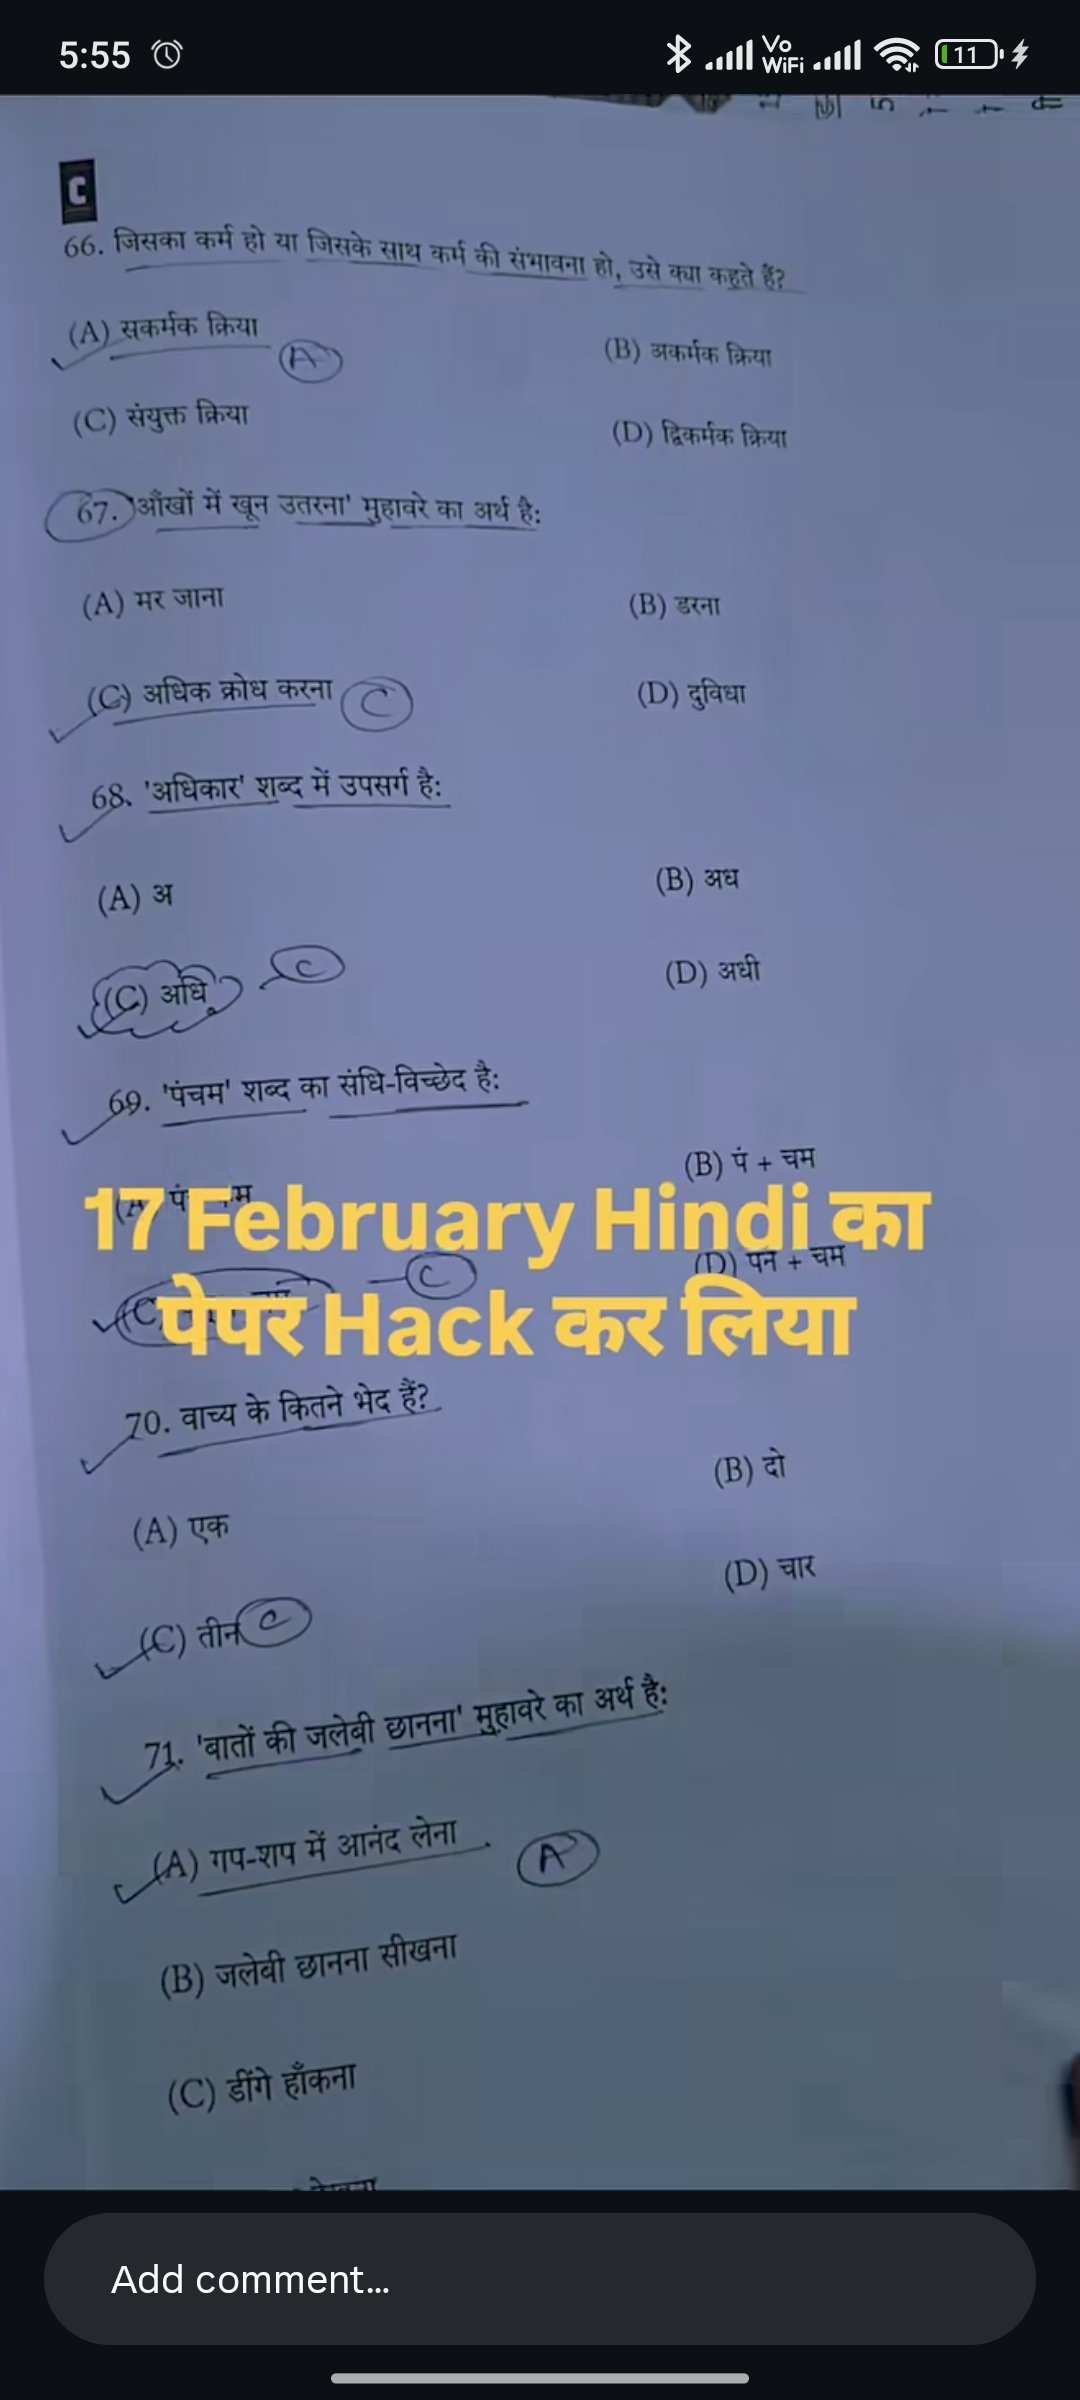 5:55
Vo
WiFi
11
C
66. जिसका कर्म हो या जिसके साथ कर्म की संभावना हो, उसे क्या कहते हैं?
(A) सकर्मक क्रिया
A
(B) अकर्मक क्रिया
(C) संयुक्त क्रिया
(D) द्विकर्मक क्रिया
67. 'आँखों में खून उतरना' मुहावरे का अर्थ है:
(A) मर जाना
(B) डरना
(C) अधिक क्रोध करना
C
(D) दुविधा
68. 'अधिकार' शब्द में उपसर्ग है:
(A) अ
(B) अध
(C) अधि
C
(D) अधी
69. 'पंचम' शब्द का संधि-विच्छेद है:
(B) पं + चम
17 February Hindi का
(D) पन + चम
C
पेपर Hack कर लिया
70. वाच्य के कितने भेद हैं?
(A) एक
(B) दो
(C) तीन
C
(D) चार
71. 'बातों की जलेबी छानना' मुहावरे का अर्थ है:
(A) गप-शप में आनंद लेना
A
(B) जलेबी छानना सीखना
(C) डींगे हाँकना
Add comment...